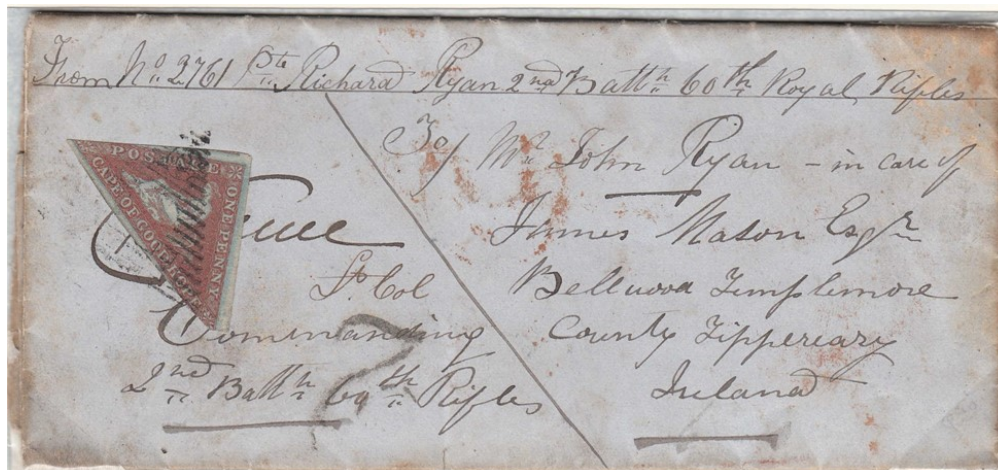 From No. 2761 Pte Richard Ryan 2nd Battn 60th Royal Rifles
To/ Mr John Ryan – in care of
James Mason Esqr
Bellwood Templemore
County Tippereary
Ireland
POSTAGE
ONE PENNY
CAPE OF GOOD HOPE
Lt Col
Commanding
2nd Battn 60th Rifles